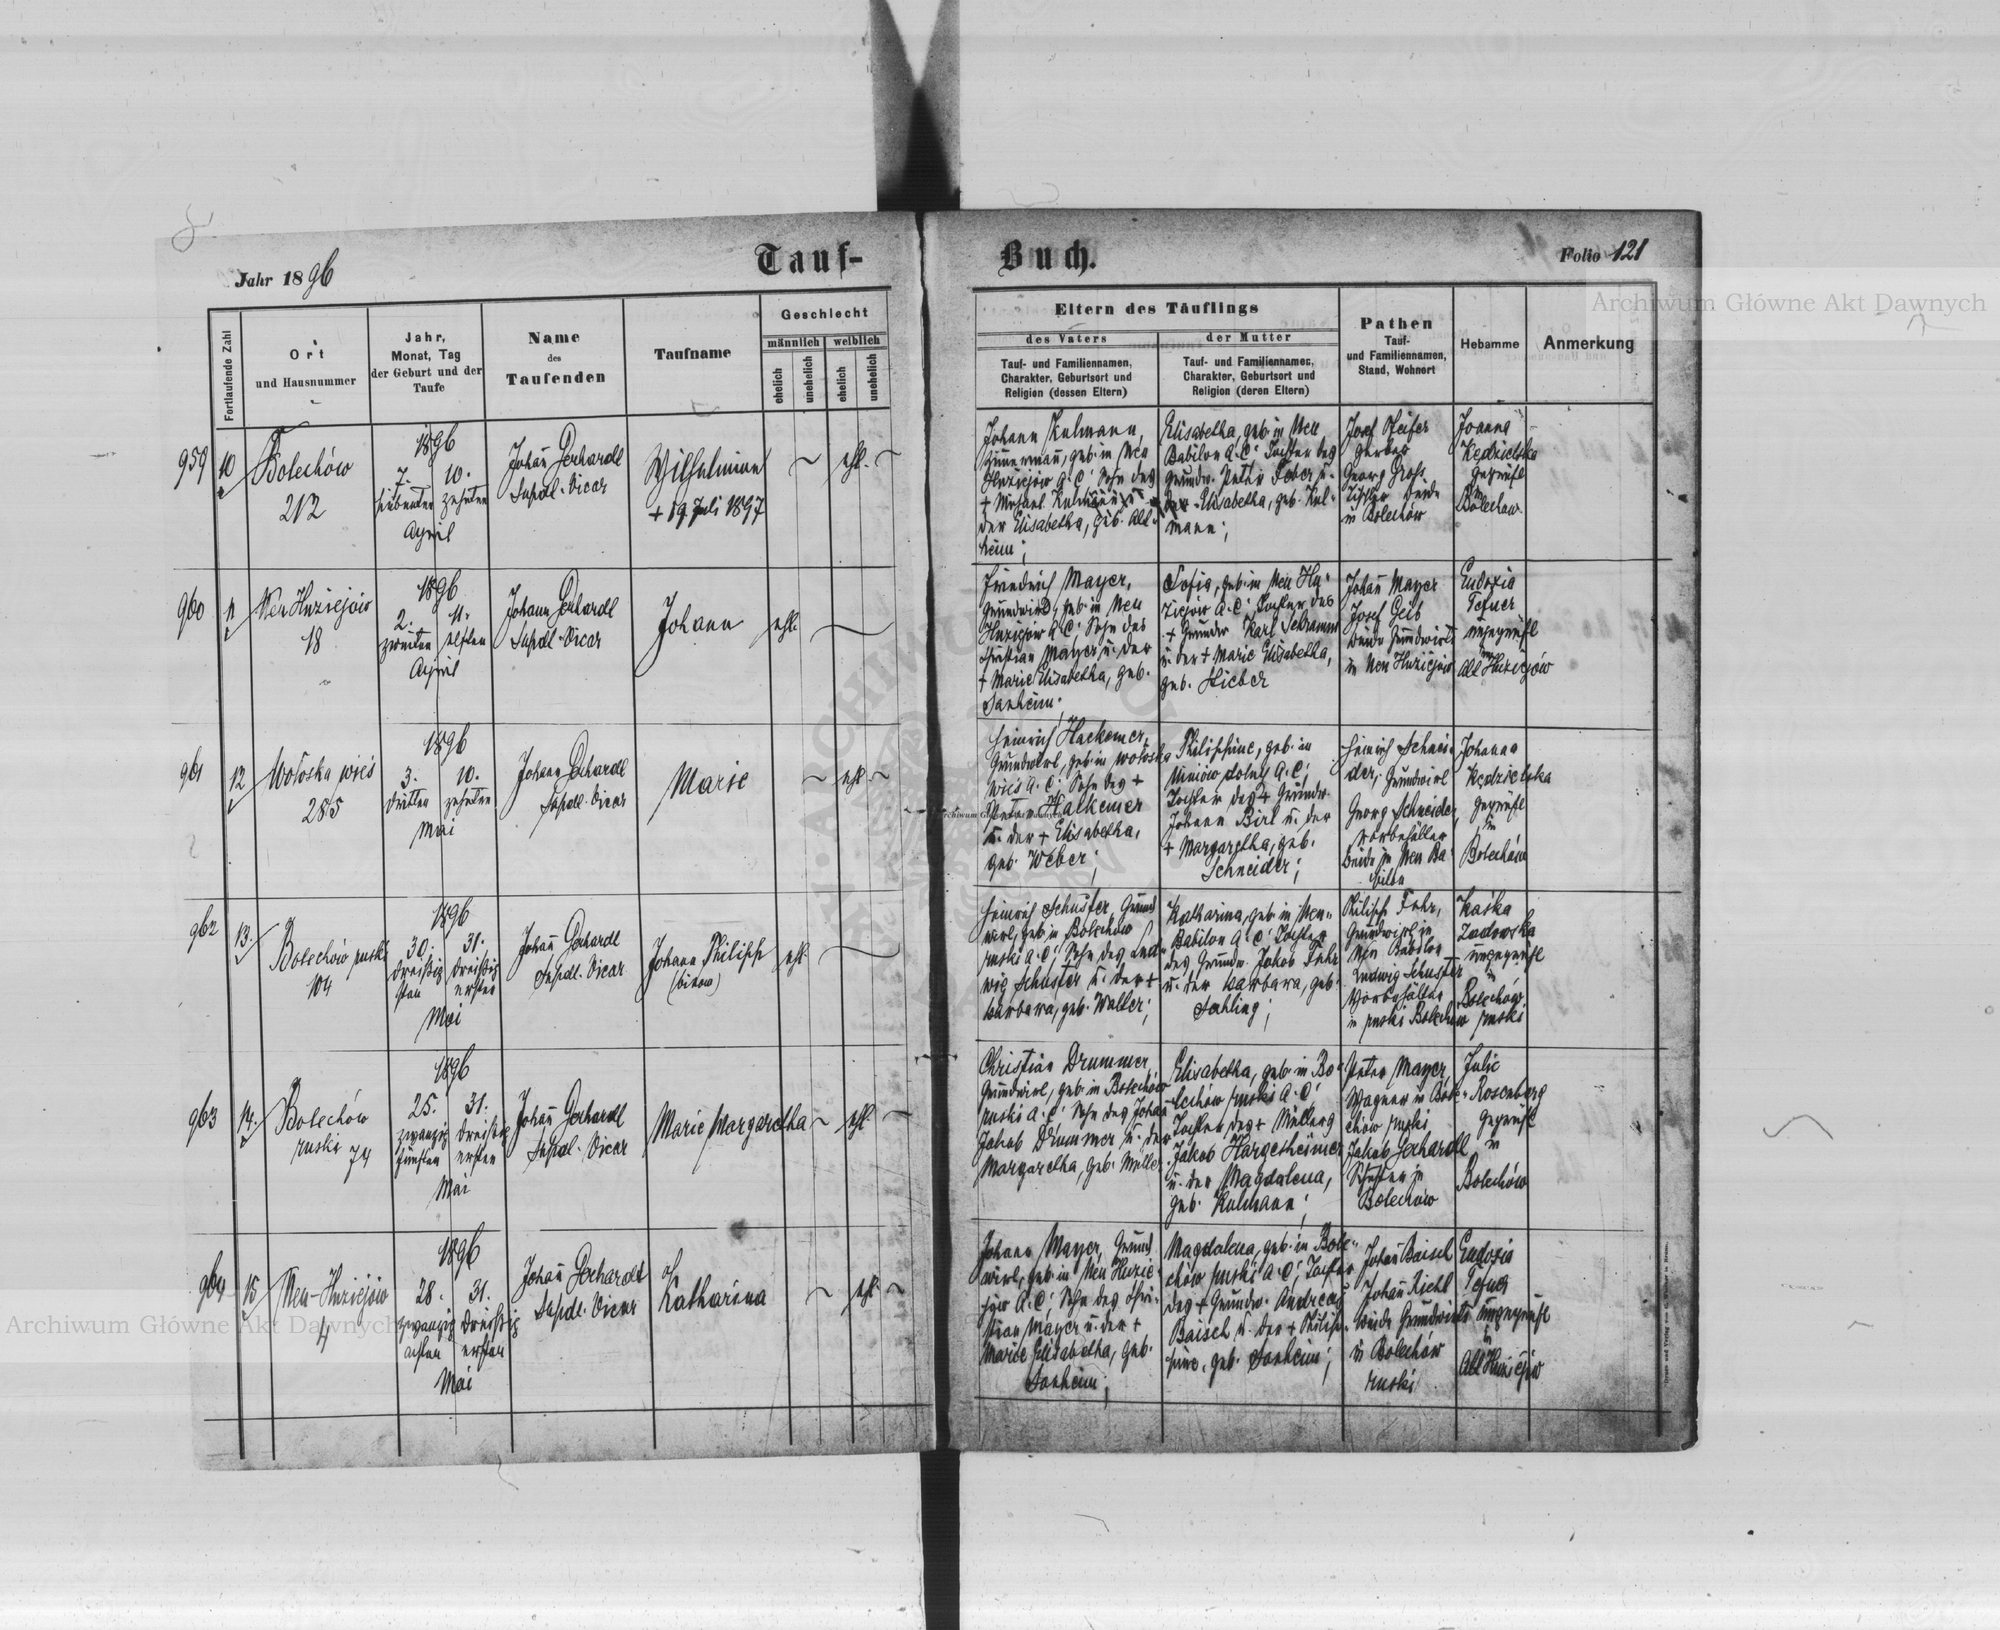 Jahr 1896
Tauf-
Buch.
Folio 121
Archiwum Główne Akt Dawnych
Fortlaufende Zahl
Ort
und Hausnummer
Jahr,
Monat, Tag
der Geburt und der
Taufe
Name
des
Taufenden
Taufname
Geschlecht
männlich weiblich
ehelich unehelich ehelich unehelich
Eltern des Täuflings
des Vaters
Tauf- und Familiennamen,
Charakter, Geburtsort und
Religion (dessen Eltern)
der Mutter
Tauf- und Familiennamen,
Charakter, Geburtsort und
Religion (deren Eltern)
Pathen
Tauf-
und Familiennamen,
Stand, Wohnort
Hebamme
Anmerkung
959 10
Bolechów
212
1896
7. 10.
siebenten zehnten
April
Johann Gerhardt
Supdl. Vicar
Wilhelmine
+ 19 Juli 1897
ehl.
Johann Kulmann,
Zimmermann, geb. in Neu
Huziejów A.C; Sohn des
+ Michael Kulmann u.
der Elisabetha, geb. Alt-
heim;
Elisabetha, geb. in Neu
Babilon A.C; Tochter des
Grundw. Peter Feher u.
der Elisabetha, geb. Kul-
mann;
Josef Pfeifer
Gerber
Georg Gross
Tischler beide
in Bolechów
Joanna
Kędzielska
geprüft
in
Bolechow
960 11
Neu Huziejów
18
1896
2. 11.
zweiten elften
April
Johann Gerhardt
Supdl. Vicar
Johann
ehl.
Friedrich Mayer,
Grundwird, geb. in Neu
Huziejów A.C; Sohn des
Christian Mayer u. der
+ Marie Elisabetha, geb.
Sanheim;
Sofia, geb. in Neu Hu-
ziejów A.C; Tochter des
+ Grundw. Karl Schramm
u. der + Marie Elisabetha,
geb. Hieber
Johann Mayer
Josef Geib
beide Grundwirte
in Neu Huziejów
Eudoxia
Tefner
ungeprüft
in
Alt Huziejów
961 12
Wołoska wieś
285
1896
3. 10.
dritten zehnten
Mai
Johann Gerhardt
Supdl. Vicar
Marie
ehl.
Heinrich Hackemer,
Grundwirt, geb. in Wołoska
wieś A.C; Sohn des +
Peter Halkemer
u. der + Elisabetha,
geb. Weber;
Philippine, geb. in
Mniów dolny A.C;
Tochter des + Grundw.
Johann Birl u. der
+ Margaretha, geb.
Schneider;
Heinrich Schnei-
der, Grundwirt
Georg Schneider,
beide in Neu Ba-
bilon
Johanna
Kędzielska
geprüft
in
Bolechów
962 13.
Bolechów ruski
104
1896
30. 31.
dreißig dreißig
sten ersten
Mai
Johann Gerhardt
Supdl. Vicar
Johann Philipp
ehl.
Heinrich Schuster, Grund
wirt, geb. in Bolechów
ruski A.C; Sohn des Lud-
wig Schuster u. der +
Barbara, geb. Waller;
Katharina, geb. in Neu-
Babilon A.C; Tochter
des Grundw. Jakob Fuhr
u. der Barbara, geb.
Sahling;
Philipp Fuhr,
Grundwirt in
Neu Babilon
Ludwig Schuster
in ruski Bolechow
Kaśka
Zadowska
ungeprüft
in
Bolechów
ruski
963 14.
Bolechów
ruski 74
1896
25. 31.
zwanzig dreißig
fünften ersten
Mai
Johann Gerhardt
Supdl. Vicar
Marie Margaretha
ehl.
Christian Drummer
Grundwirt, geb. in Bolechów
ruski A.C; Sohn des Johann
Jakob Drummer u. der
Margaretha, geb. Müller
Elisabetha, geb. in Bo-
lechów ruski A.C;
Tochter des + Müllers
Jakob Hargesheimer
u. der Magdalena,
geb. Kulmann;
Peter Mayer
Wagner in Bole-
chów ruski
Jakob Gerhardt
Schuster in
Bolechów
Julie
Rosenberg
geprüft
in
Bolechów
964 15
Neu-Huziejów
4
1896
28. 31.
zwanzig dreißig
achten ersten
Mai
Johann Gerhardt
Supdl. Vicar
Katharina
ehl.
Johann Mayer, Grund
wirt, geb. in Neu Huzie-
jów A.C; Sohn des Chri-
stian Mayer u. der +
Marie Elisabetha, geb.
Sanheim;
Magdalena, geb. in Bole-
chów ruski A.C; Tochter
des + Grundw. Andreas
Baisch u. der + Philip-
pine, geb. Sanheim;
Johann Baisch
Johann Riehl
beide Grundwirte
in Bolechów
ruski
Eudoxia
Tefner
ungeprüft
in
Alt Huziejów
Archiwum Główne Akt Dawnych